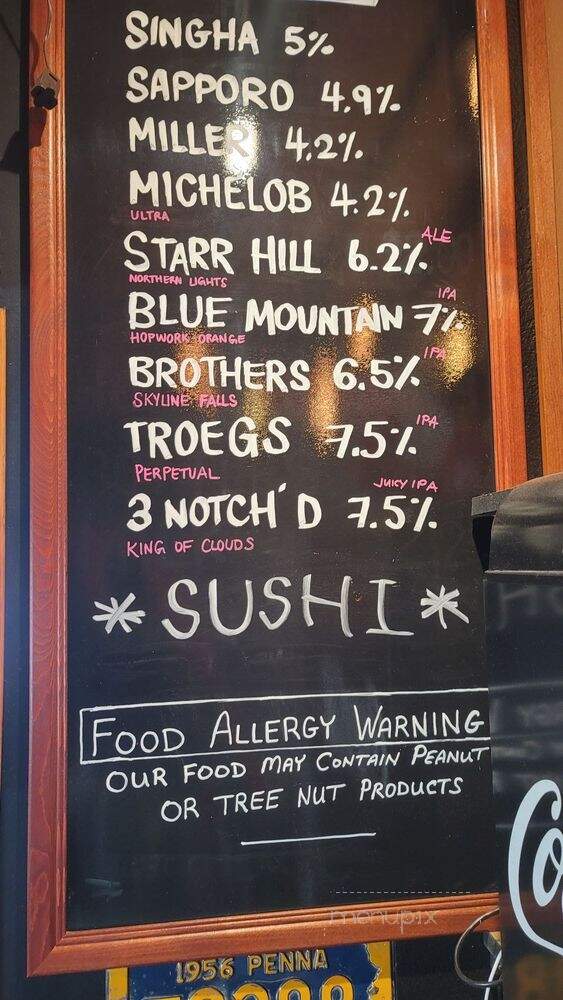 SINGHA 5%
SAPPORO 4.9%
MILLER 4.2%
MICHELOB 4.2%
ULTRA
ALE
STARR HILL 6.2%
NORTHERN LIGHTS
IPA
BLUE MOUNTAIN 7%
HOPWORK ORANGE
IPA
BROTHERS 6.5%
SKYLINE FALLS
IPA
TROEGS 7.5%
PERPETUAL
JUICY IPA
3 NOTCH'D 7.5%
KING OF CLOUDS
* SUSHI *
FOOD ALLERGY WARNING
OUR FOOD MAY CONTAIN PEANUT
OR TREE NUT PRODUCTS
menupix
1956 PENNA